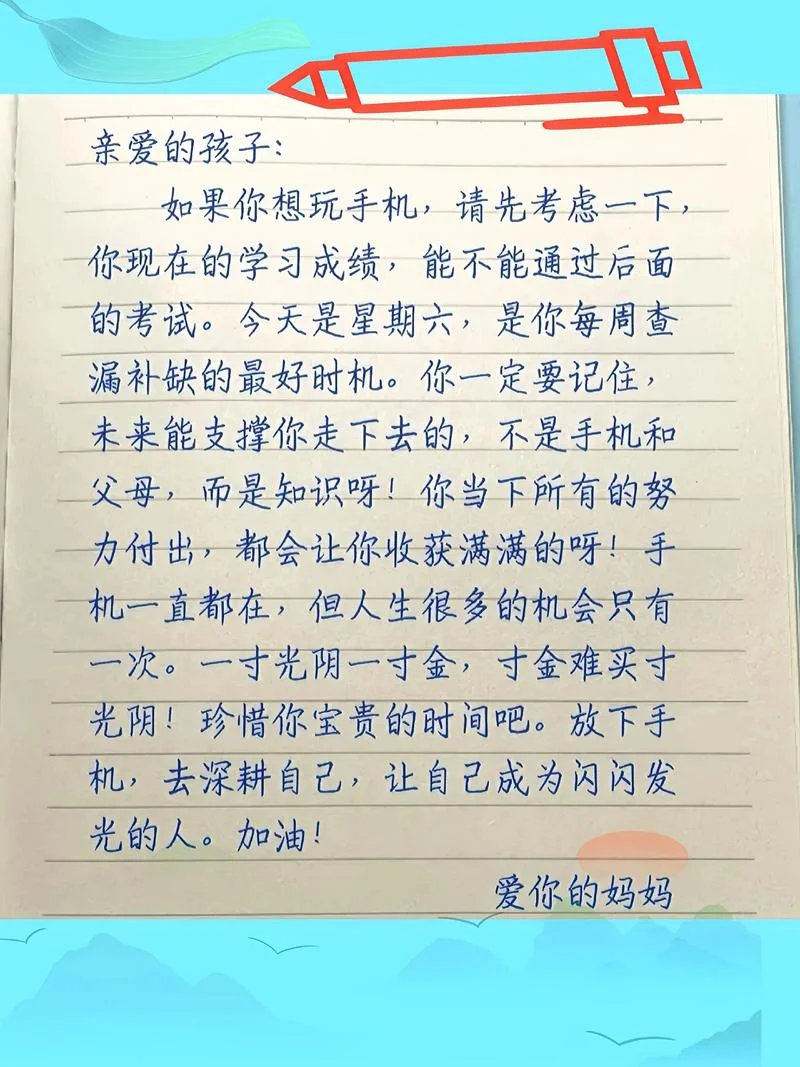 亲爱的孩子：
如果你想玩手机，请先考虑一下，
你现在的学习成绩，能不能通过后面
的考试。今天是星期六，是你每周查
漏补缺的最好时机。你一定要记住，
未来能支撑你走下去的，不是手机和
父母，而是知识呀！你当下所有的努
力付出，都会让你收获满满的呀！手
机一直都在，但人生很多的机会只有
一次。一寸光阴一寸金，寸金难买寸
光阴！珍惜你宝贵的时间吧。放下手
机，去深耕自己，让自己成为闪闪发
光的人。加油！
爱你的妈妈